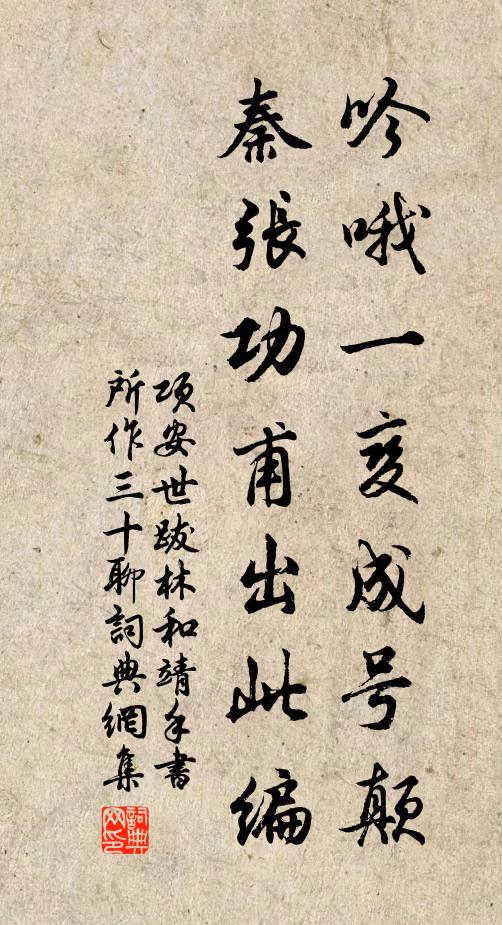 吟哦一变成号颠
秦張功甫出此编
项安世跋林和靖手書
所作三十聊詞典網集
詞典网印